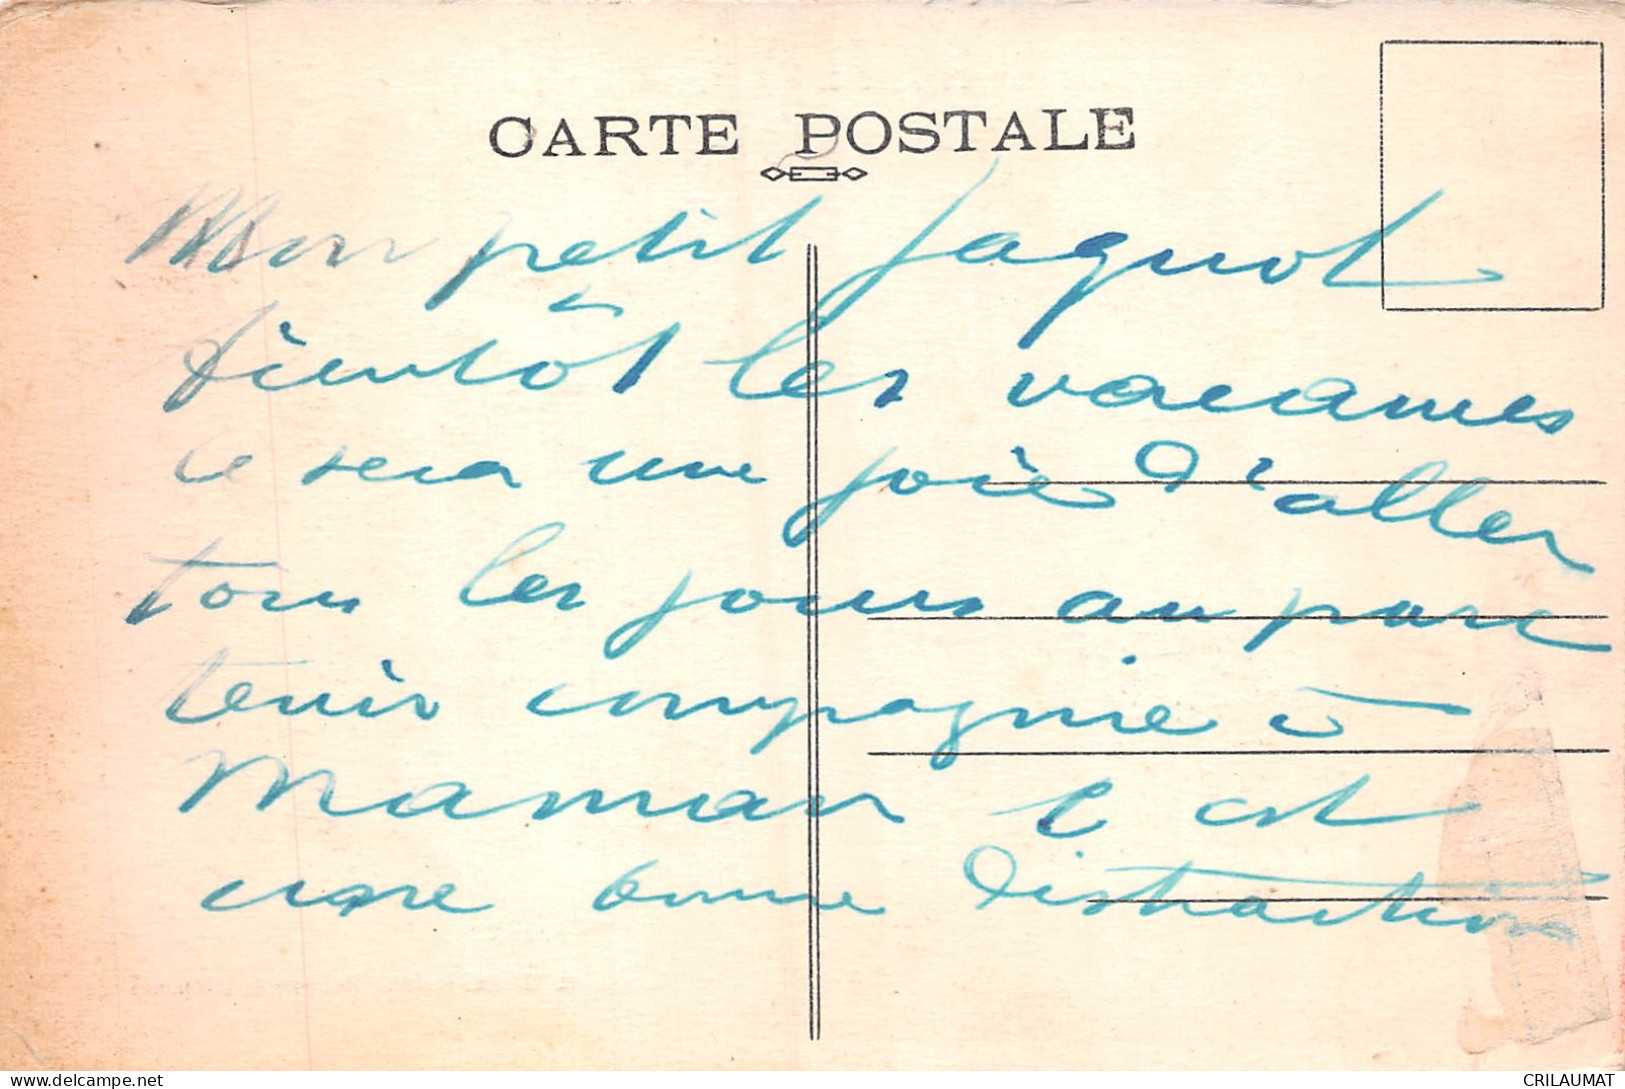 CARTE POSTALE
Mon petit Jaquot
bientôt les vacances
ce sera une joie d'aller
tous les jours au parc
tenir compagnie à
Maman c est
une bonne distraction
www.delcampe.net
CRILAUMAT